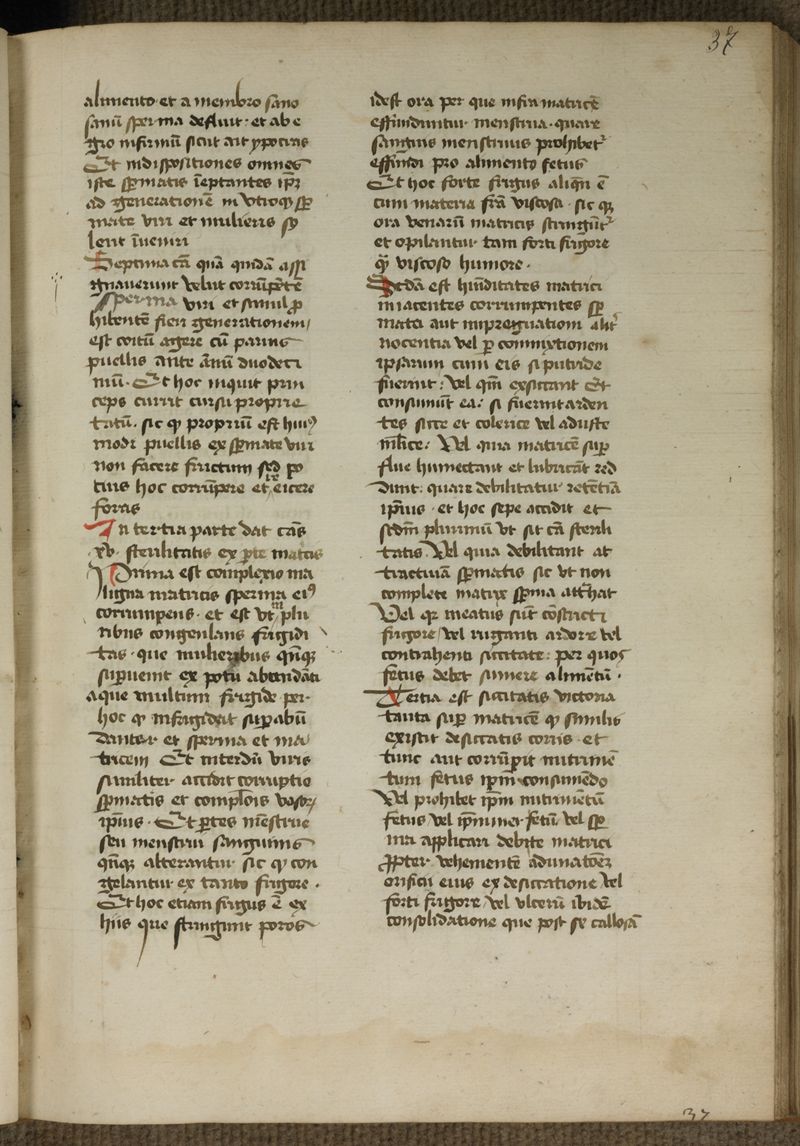 37
alimento et a membro sano
sanũ sperma defluit et ab e
gro infirmũ sicut ait ypocras
Et indispositiones omnes
iste sp̃matis
ad generationẽ in vtroqꝫ sp̃
mate viri et mulieris so
lent ĩueniri
Septima cã quã quidã assi
gnauerunt velut
Sperma viri et simul ꝓ
hibentẽ fieri generationem
est coitũ agere cũ paruis
puellis ante ãnũ duodeci
mũ. Et hoc inquit prin
ceps currit cursu proprie
tatũ. sic ꝙ propriũ est huiꝰ
modi puellis ex sp̃mate viri
non facere fructum sed po
tius hoc corrũpere et eicere
foras
In tertia parte dat cãs
xv sterilitatis ex ꝑte matricis
Prima est complexio ma
ligna matricis sperma eiꝰ
corrumpens. et est vt in plu
ribus congenlans frigidi
tas. que mulieribus qñqꝫ
supuenit ex potu abundãti
aque multum frigide per
hoc ꝙ infrigidat supabũ
danter et sperma et ma
tricem Et interdũ viris
similiter accidit corruptio
sp̃matis et
ipĩus. Et ꝑtes mẽstrue
seu menstrui sanguinis
qñqꝫ alterantur sic ꝙ con
gelantur ex tanto frigore.
Et hoc etiam frigus ẽ ex
hiis que stringunt poros
idest ora per que infra matricẽ
effunduntur menstrua. quare
sanguis menstruus prohibetᷣ
effundi pro alimento fetus
Et hoc forte frigus aliqñ ẽ
cum materia frã viscosa. sic qꝫ
ora venarũ matricis stringũtᷣ
et opilantur tam forti frigore
qᷓ viscoso humore.
Secũda est hũiditates matrici
iniacentes corrumpentes sp̃
mata aut impregnationi alit̃
nocentia vel ꝑ commixtionem
ipsarum cum eis si putride
fuerint: Vel qm̃ exsiccant Et
consumũt ea: si fuerint arden
tes sicce et colerice vel aduste
mẽlice: Vel quia matricẽ sup̃
flue humectant et lubricãt red
dunt: quare debilitatur retẽtiã
ipsius. et hoc sepe accidit et
secdm̃ plurimũ vt sit cã sterili
tatis. Vel quia debilitant at
tractiuã sp̃matis sic vt non
complete matrix sp̃ma atthat
Vel qꝛ meatus sũt cõstricti
frigore vel ruganti ardore vel
contrahenti siccitate: per quos
fetus debet sumere alimẽtũ.
Tertia est siccitatis victoria
tanta sup̃ matricẽ ꝙ similis
existit desiccatis coriis. et
tunc aut corrũpit nutrimẽ
tum fetus ip̃m consumẽdo
Vel prohibet ip̃m nutrimẽtũ
fetus vel fetũ vel sp̃
ma applicari debite matrici
ꝓpter vehementẽ adunatoẽʒ
orificii eius ex desiccatione vel
forti frigore vel vlcerũ ibidẽ
consolidatione que post se callosã
37